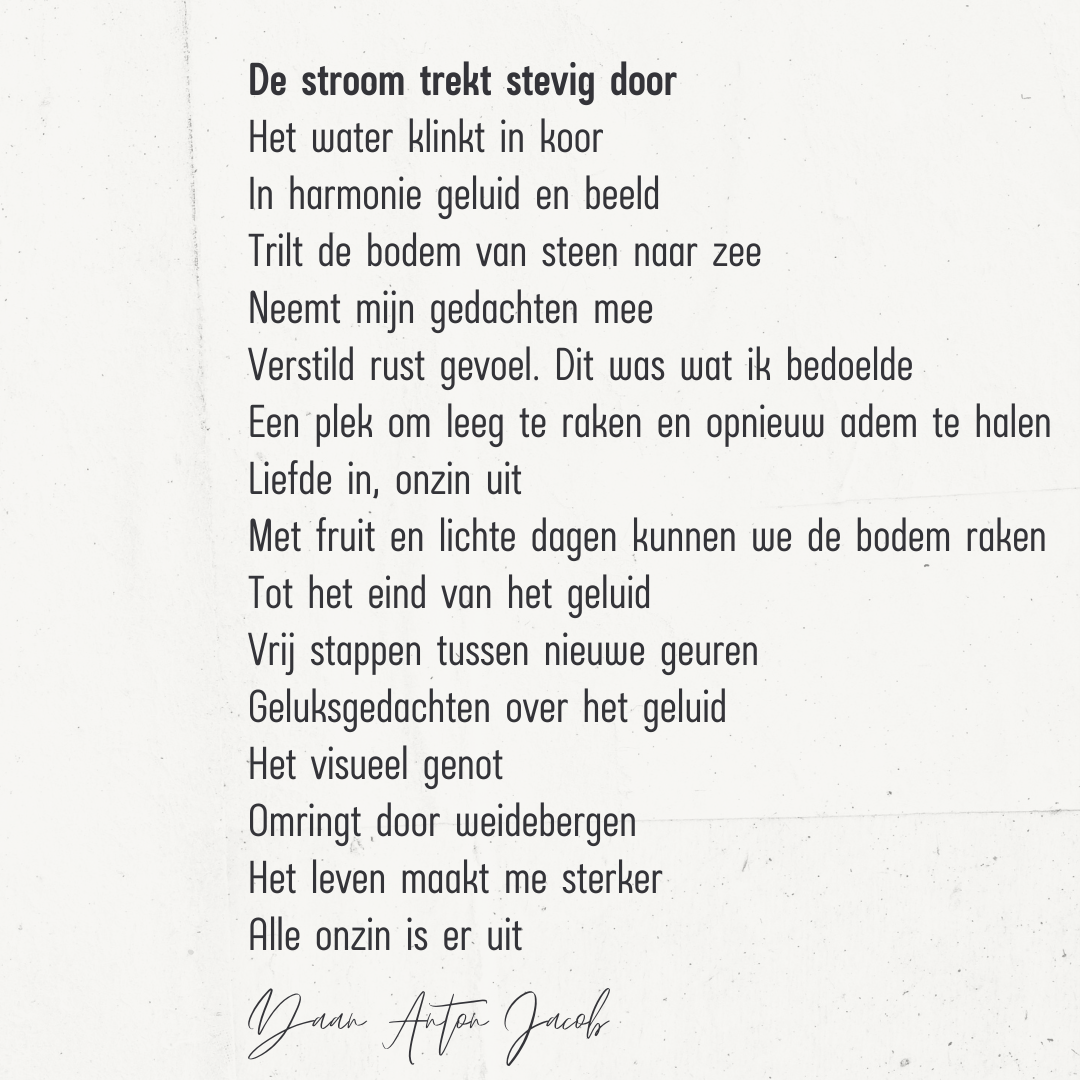 De stroom trekt stevig door
Het water klinkt in koor
In harmonie geluid en beeld
Trilt de bodem van steen naar zee
Neemt mijn gedachten mee
Verstild rust gevoel. Dit was wat ik bedoelde
Een plek om leeg te raken en opnieuw adem te halen
Liefde in, onzin uit
Met fruit en lichte dagen kunnen we de bodem raken
Tot het eind van het geluid
Vrij stappen tussen nieuwe geuren
Geluksgedachten over het geluid
Het visueel genot
Omringt door weidebergen
Het leven maakt me sterker
Alle onzin is er uit
Daan Anton Jacob